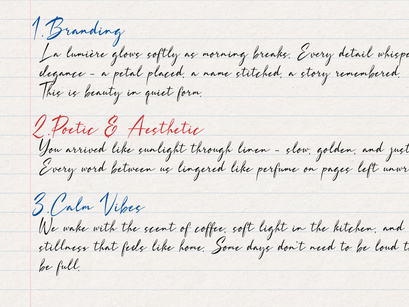 1. Branding
La lumière glows softly as morning breaks. Every detail
elegance – a petal placed, a name stitched, a story remembered.
This is beauty in quiet form.
2. Poetic & Aesthetic
You arrived like sunlight through linen – slow, golden, and
Every word between us lingered like perfume on pages left
3. Calm Vibes
We wake with the scent of coffee, soft light in the kitchen, and
stillness that feels like home. Some days don't need to be loud
be full.